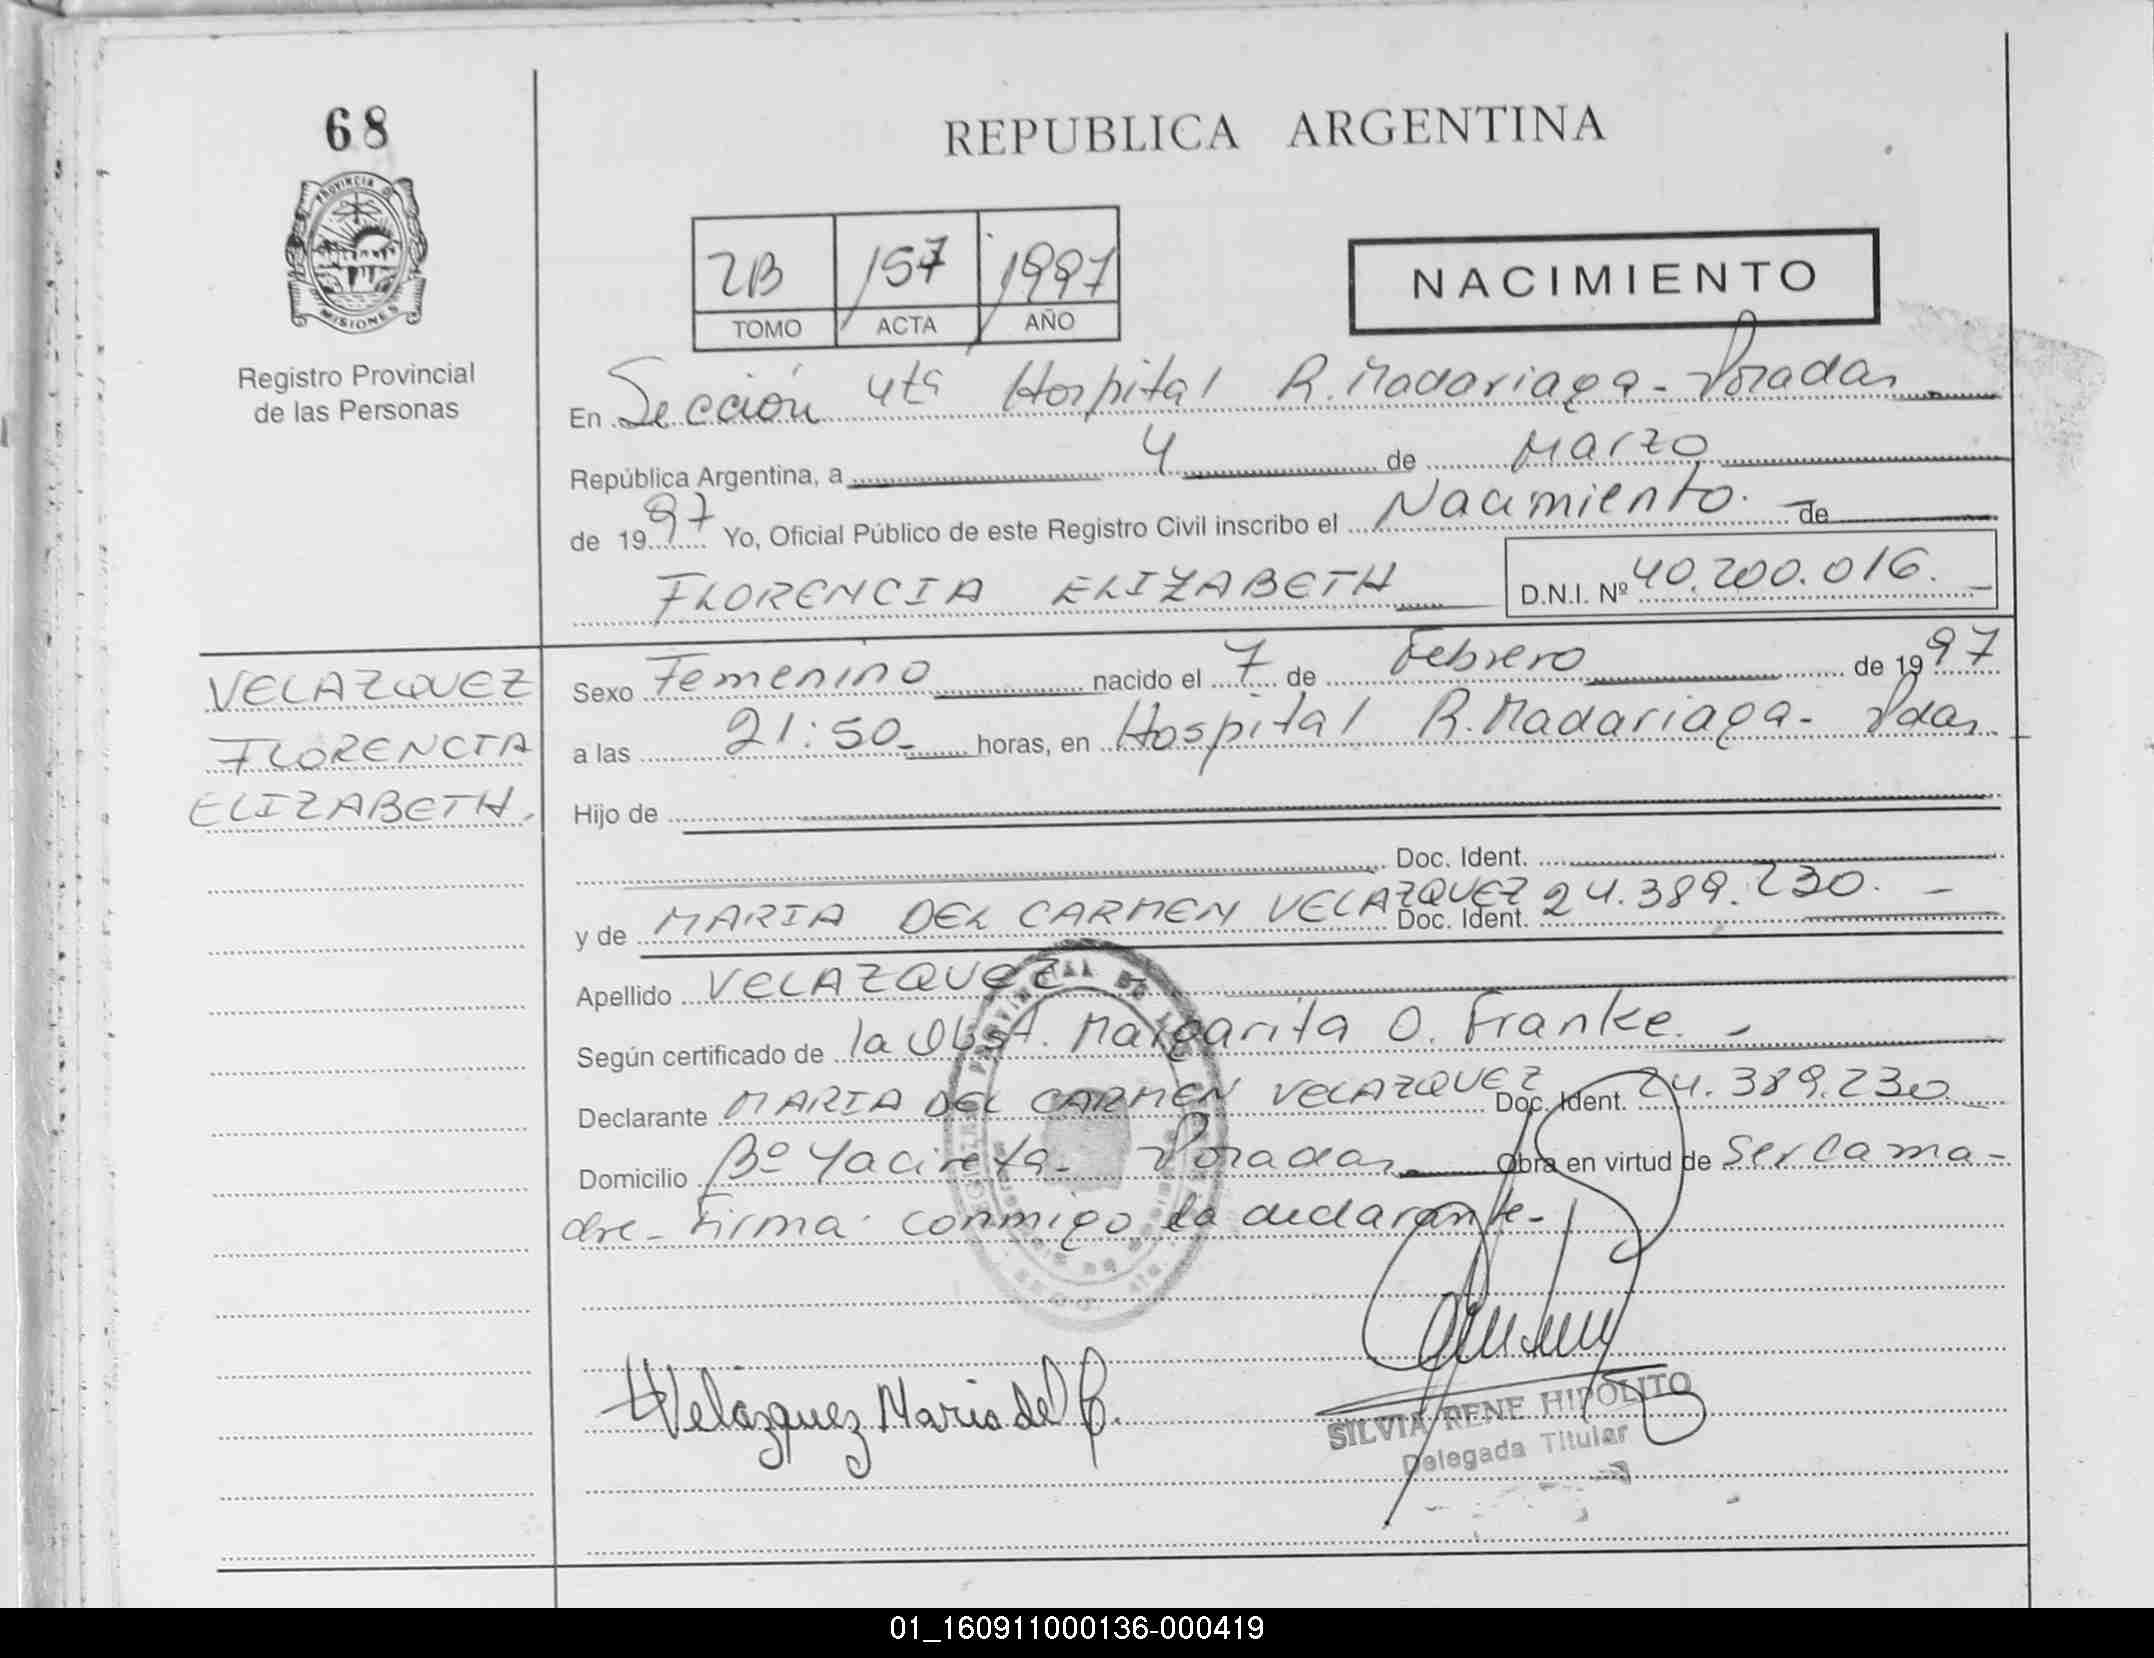 68
PROVINCIA DE
MISIONES
Registro Provincial
de las Personas
REPUBLICA ARGENTINA
2B 157 1997
TOMO ACTA AÑO
NACIMIENTO
En Sección 4ta Hospital R. Madariaga - Posadas
República Argentina, a 4 de Marzo
de 1997 Yo, Oficial Público de este Registro Civil inscribo el Nacimiento. de
FLORENCIA ELIZABETH D.N.I. Nº 40.200.016.
VELAZQUEZ
FLORENCIA
ELIZABETH.
Sexo Femenino nacido el 7 de Febrero de 1997
a las 21:50 horas, en Hospital R. Madariaga - Pdas
Hijo de
Doc. Ident.
y de MARIA DEL CARMEN VELAZQUEZ Doc. Ident. 24.389.230.
Apellido VELAZQUEZ
Según certificado de la Obst. Margarita O. Franke.
Declarante MARIA DEL CARMEN VELAZQUEZ Doc. Ident. 24.389.230
Domicilio Bº Yacireta - Posadas Obra en virtud de Ser la ma-
dre - Firma conmigo la declarante -
Velázquez Maria del C.
SILVIA RENE HIPOLITO
Delegada Titular
01_160911000136-000419